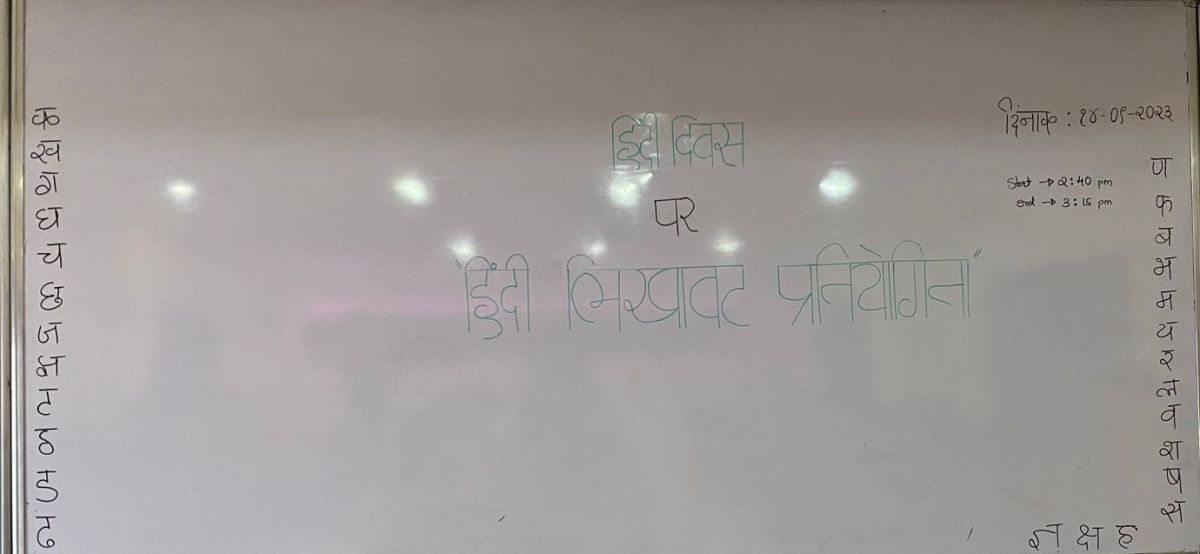 दिंनाक : १४-०९-२०२३
हिंदी दिवस
पर
"हिंदी लिखावट प्रतियोगिता"
Start → 2:40 pm
end → 3:15 pm
क
ख
ग
घ
च
छ
ज
झ
ट
ठ
ड
ढ
ण
फ
ब
भ
म
य
र
ल
व
श
ष
स
ज्ञ क्ष ह